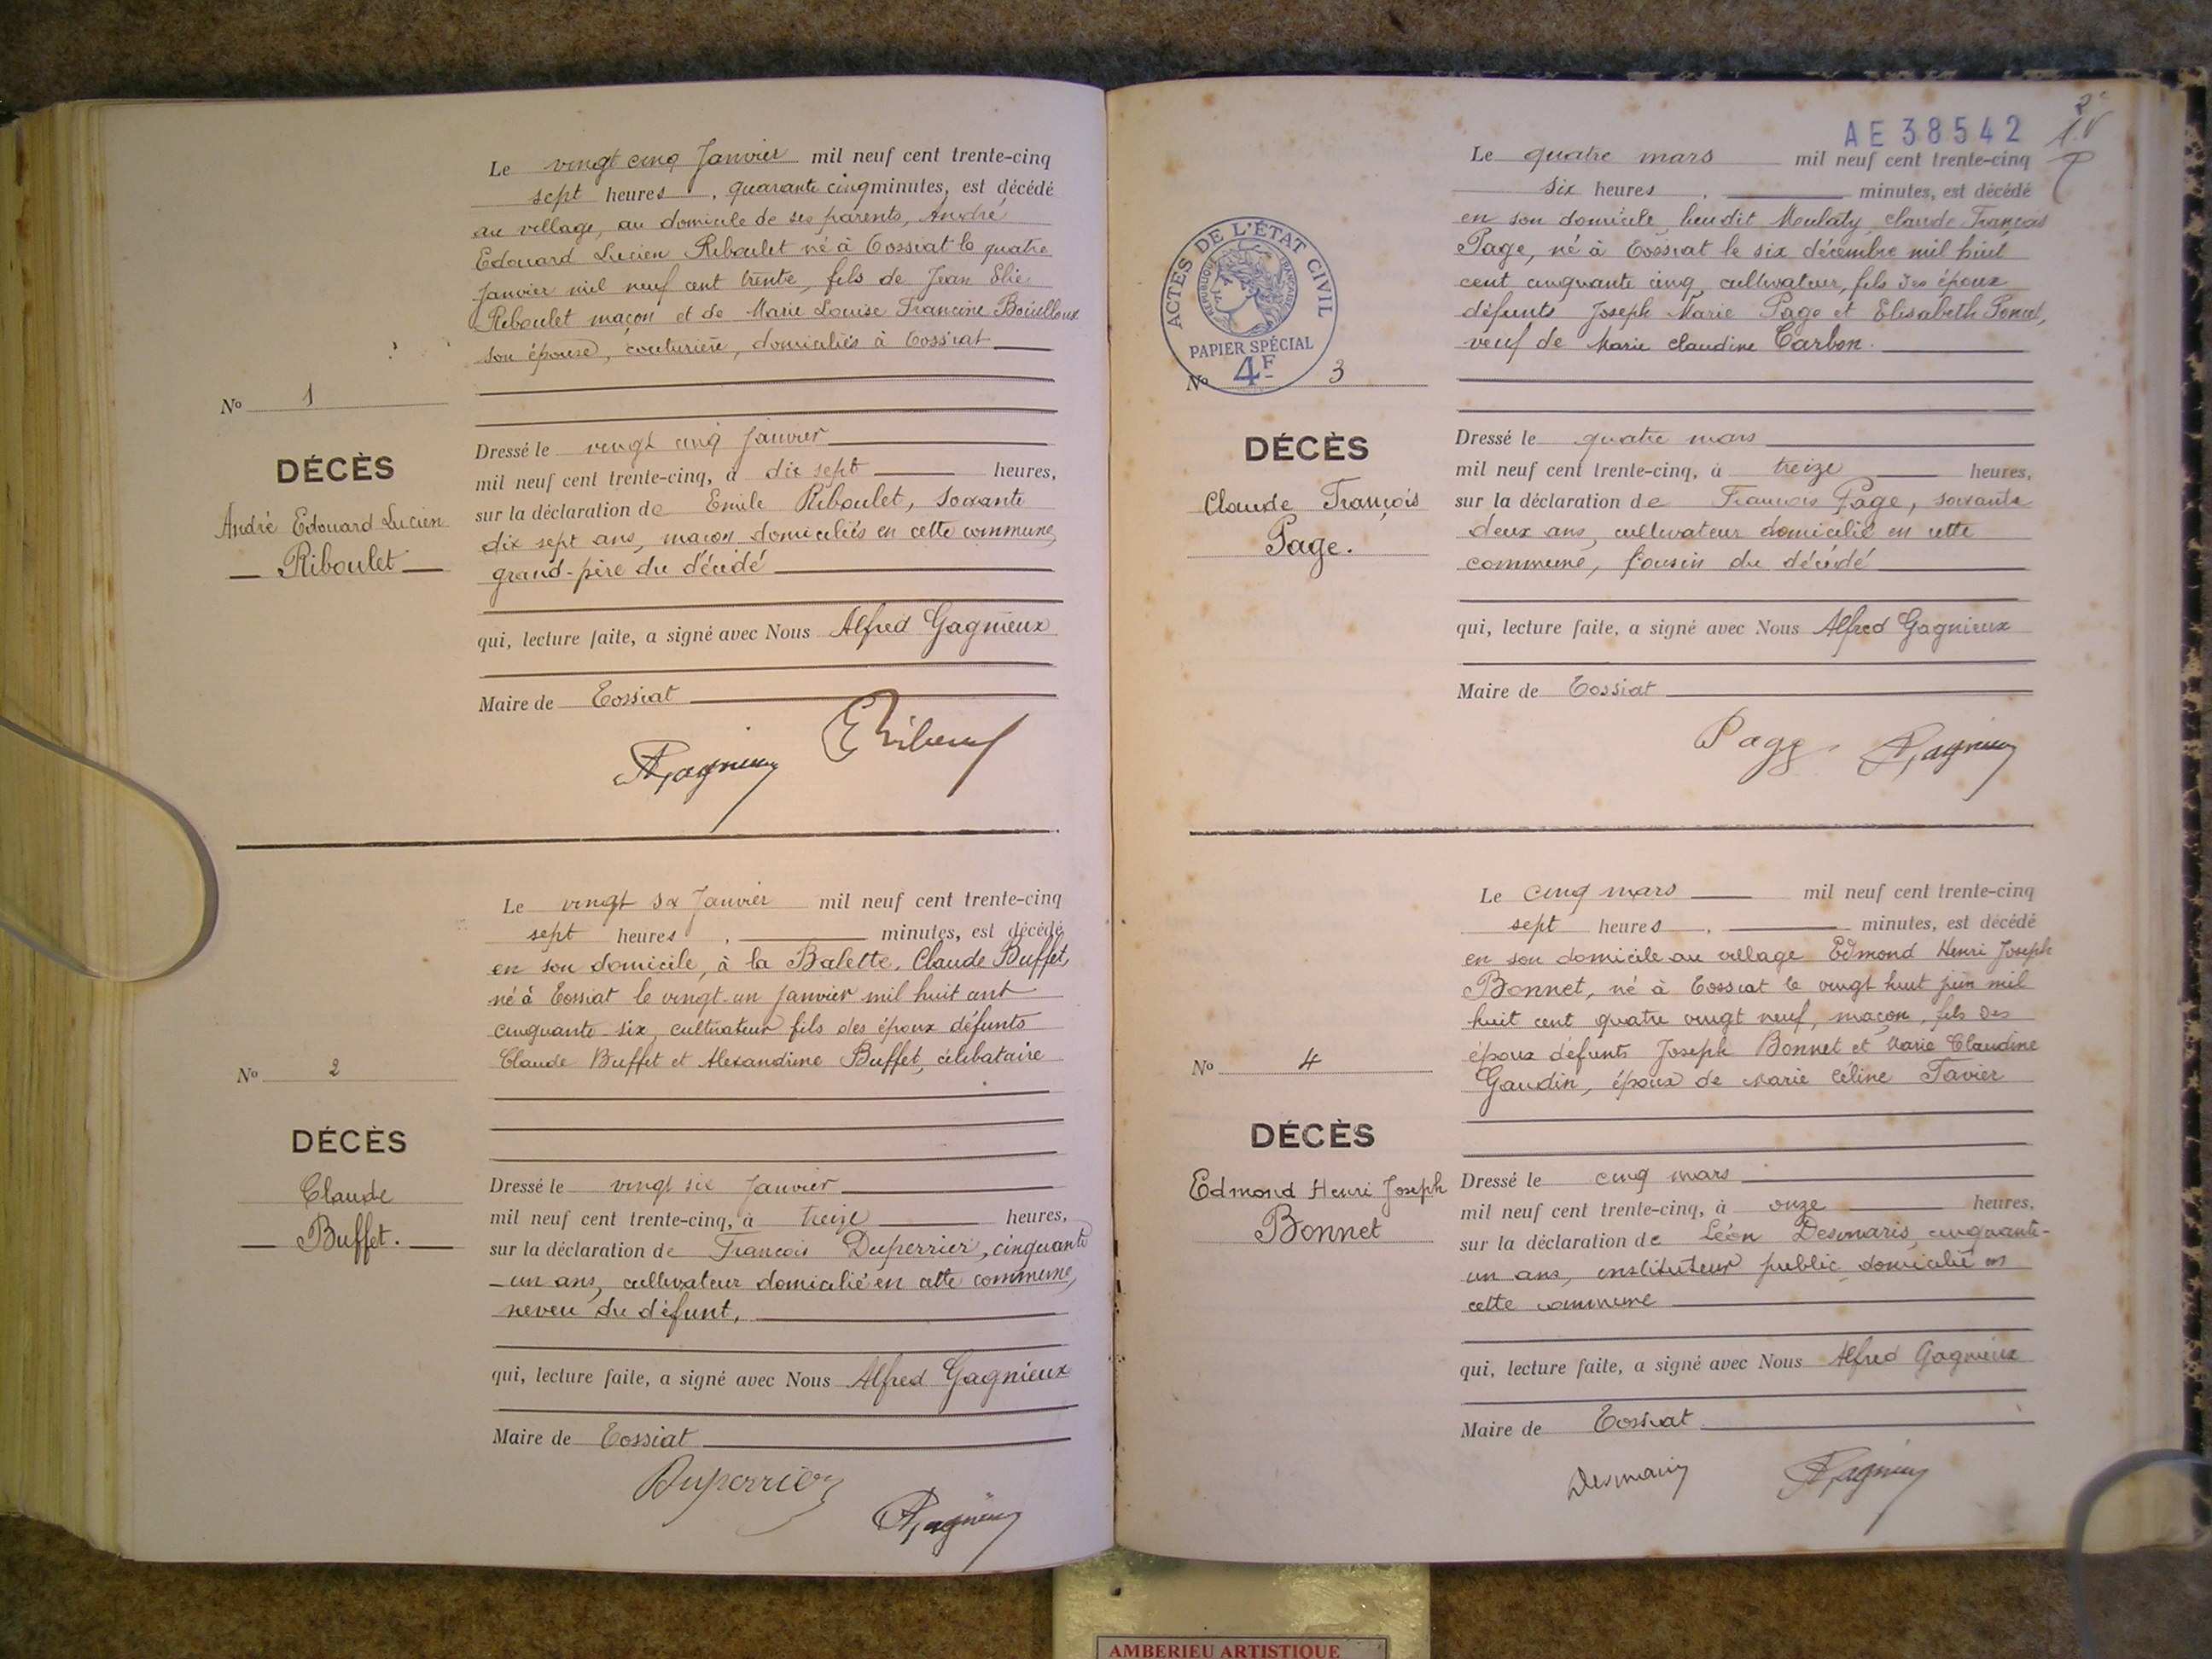 Le vingt cinq Janvier mil neuf cent trente-cinq
sept heures, quarante cinq minutes, est décédé
au village, au domicile de ses parents, André
Edouard Lucien Riboulet né à Tossiat le quatre
Janvier mil neuf cent trente, fils de Jean Elie
Riboulet maçon et de Marie Louise Francine Bouilloux
son épouse, couturière, domiciliés à Tossiat
No 1
DÉCÈS
André Edouard Lucien
Riboulet
Dressé le vingt cinq Janvier
mil neuf cent trente-cinq, à dix sept heures,
sur la déclaration de Emile Riboulet, soixante
dix sept ans, maçon domiciliés en cette commune,
grand-père du décédé
qui, lecture faite, a signé avec Nous Alfred Gagnieux
Maire de Tossiat
AGagnieux
ERiboulet
Le vingt six Janvier mil neuf cent trente-cinq
sept heures, minutes, est décédé
en son domicile, à la Balette, Claude Buffet,
né à Tossiat le vingt-un Janvier mil huit cent
cinquante-six, cultivateur fils des époux défunts
Claude Buffet et Alexandrine Buffet, célibataire
No 2
DÉCÈS
Claude
Buffet.
Dressé le vingt six Janvier
mil neuf cent trente-cinq, à treize heures,
sur la déclaration de François Duperrier, cinquante
-un ans, cultivateur domicilié en cette commune,
neveu du défunt,
qui, lecture faite, a signé avec Nous Alfred Gagnieux
Maire de Tossiat
Duperrier
AGagnieux
AE 38542
Le quatre mars mil neuf cent trente-cinq
six heures, minutes, est décédé
en son domicile, lieudit Claude François
Page, né à Tossiat le six décembre mil huit
cent cinquante cinq, cultivateur, fils des époux
défunts Joseph Marie Page et Elisabeth
veuf de Marie Claudine Carbon.
ACTES DE L'ÉTAT CIVIL
RÉPUBLIQUE FRANÇAISE
PAPIER SPÉCIAL
4F
No 3
DÉCÈS
Claude François
Page.
Dressé le quatre mars
mil neuf cent trente-cinq, à treize heures,
sur la déclaration de François Page, soixante
deux ans, cultivateur domicilié en cette
commune, cousin du décédé
qui, lecture faite, a signé avec Nous Alfred Gagnieux
Maire de Tossiat
Page
AGagnieux
Le cinq mars mil neuf cent trente-cinq
sept heures, minutes, est décédé
en son domicile au village Edmond Henri Joseph
Bonnet, né à Tossiat le vingt huit juin mil
huit cent quatre vingt neuf, maçon, fils des
époux défunts Joseph Bonnet et Marie Claudine
Gaudin, époux de Marie Céline Tavier
No 4
DÉCÈS
Edmond Henri Joseph
Bonnet
Dressé le cinq mars
mil neuf cent trente-cinq, à onze heures,
sur la déclaration de Léon Desmaris, cinquante-
un ans, instituteur public domicilié en
cette commune
qui, lecture faite, a signé avec Nous Alfred Gagnieux
Maire de Tossiat
Desmaris
AGagnieux
AMBERIEU ARTISTIQUE